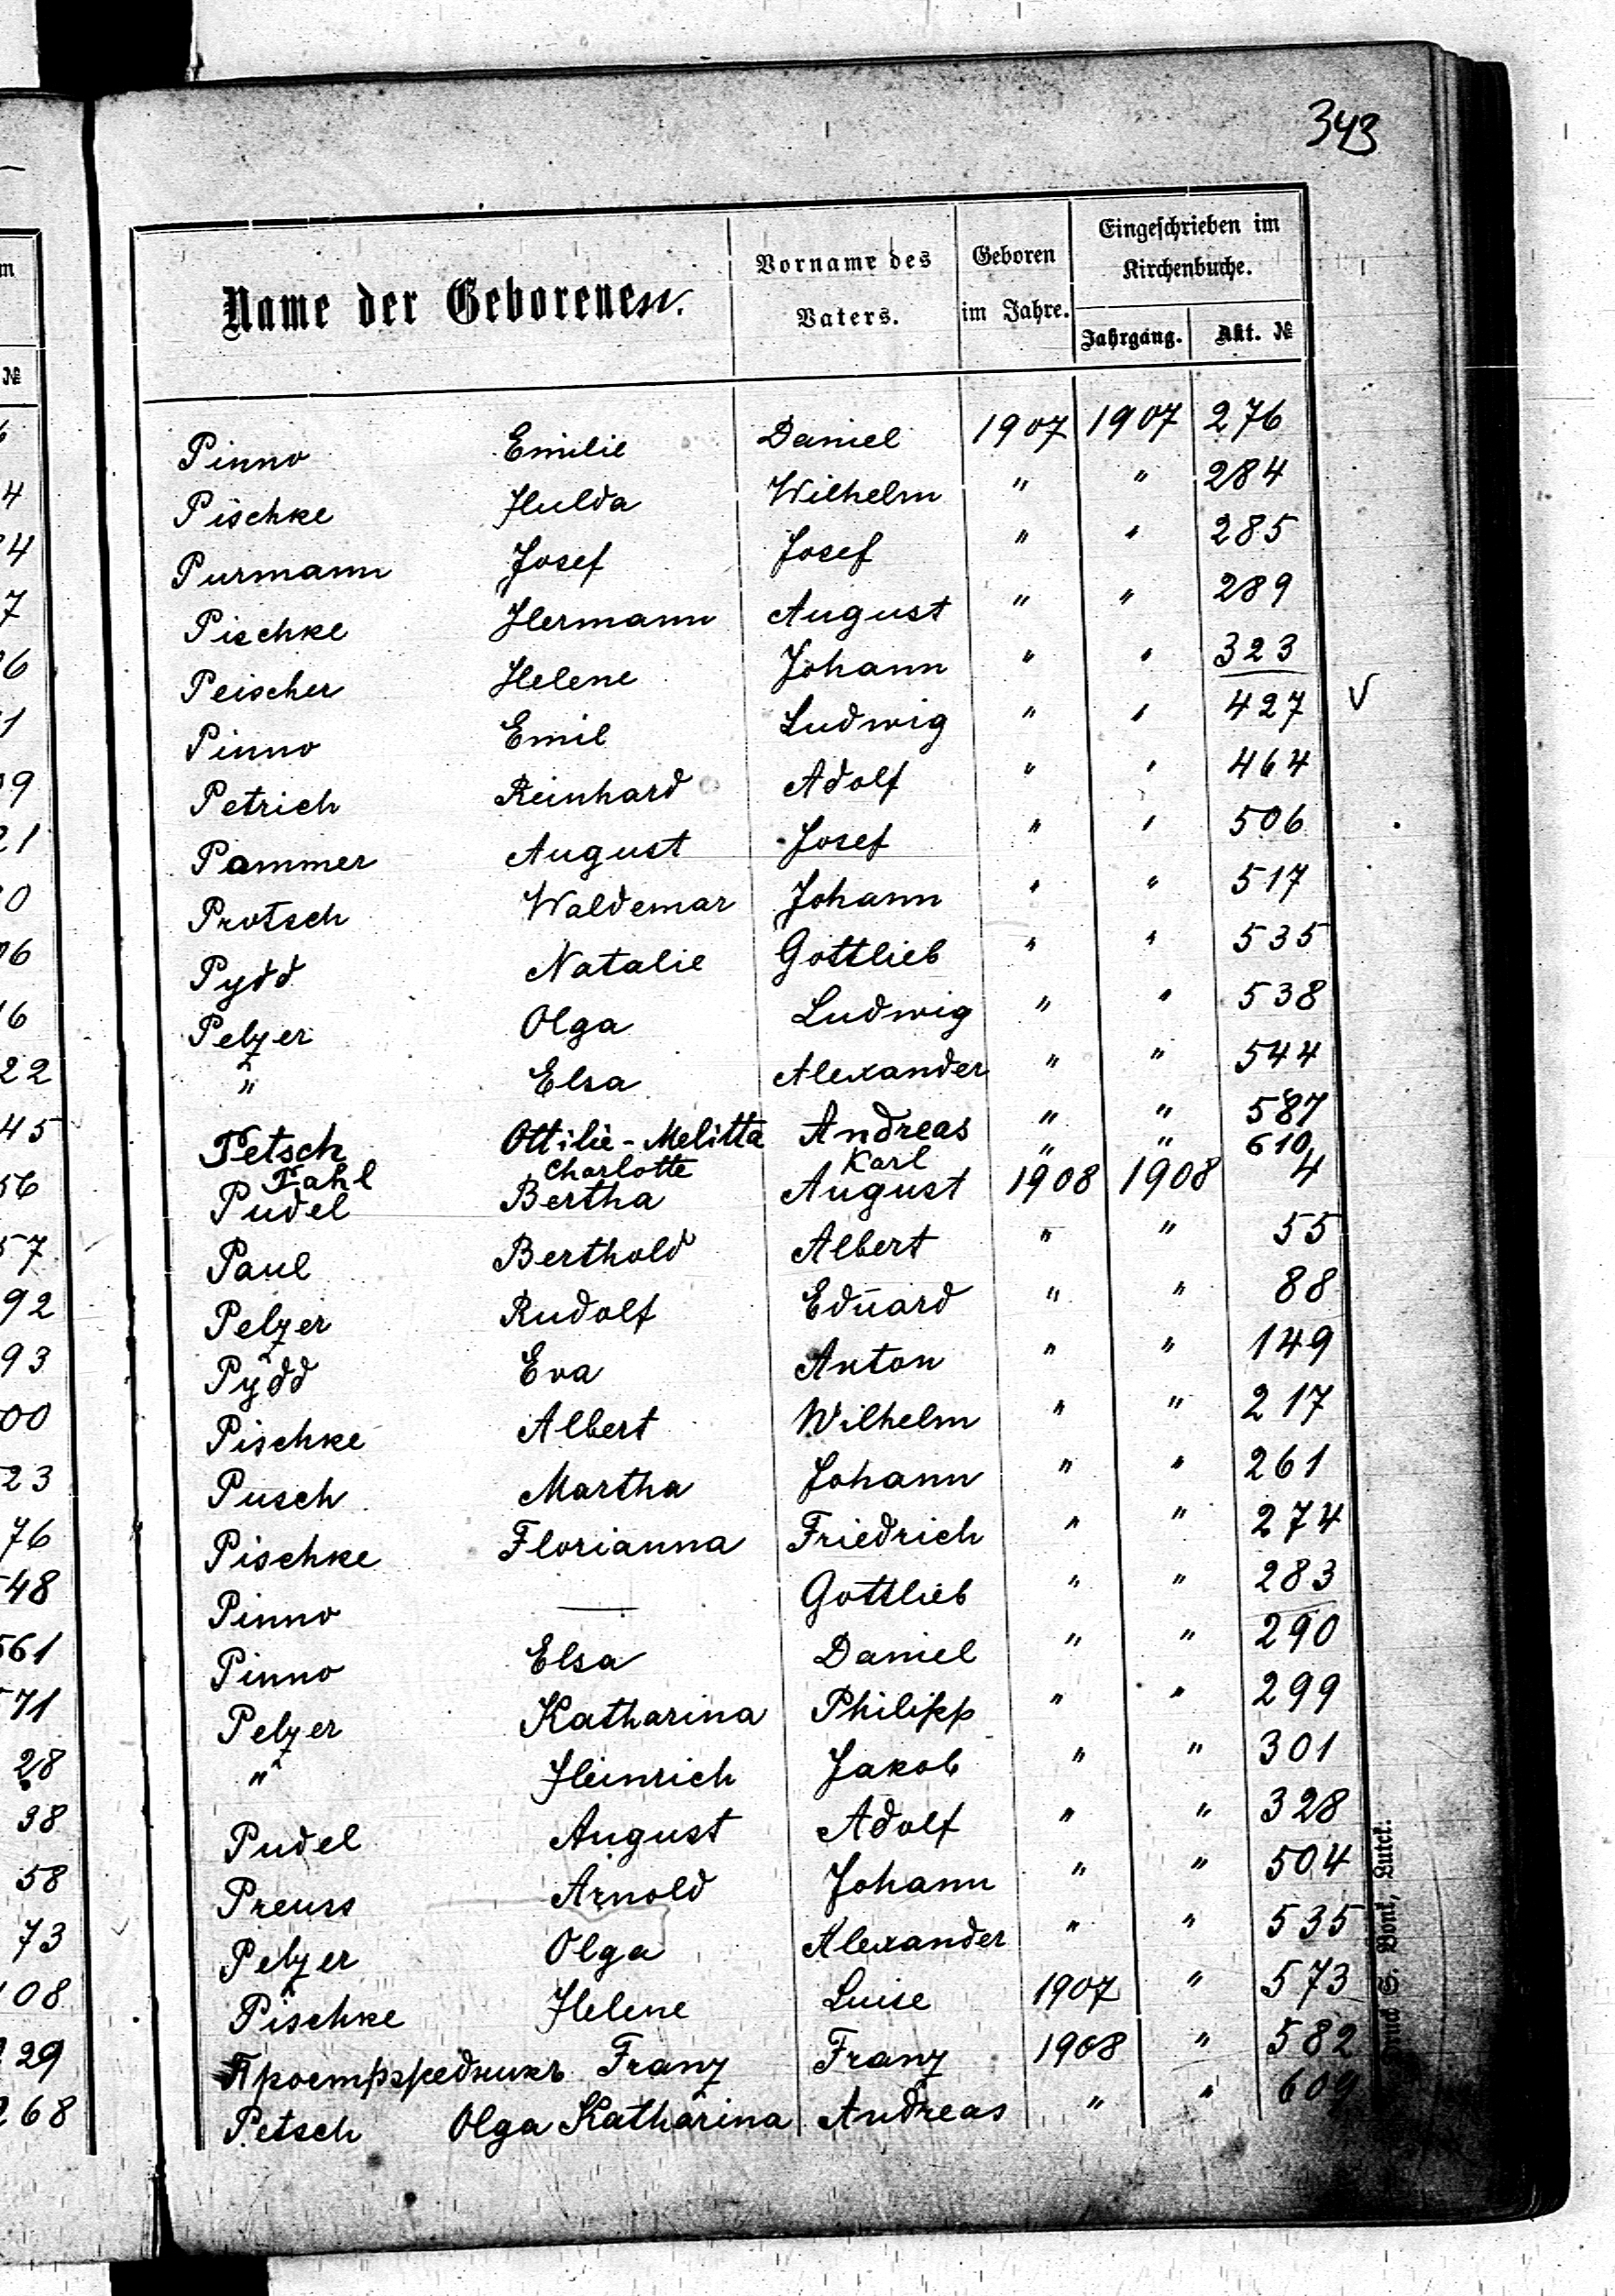 343
Name der Geborenen.
Vorname des Vaters.
Geboren im Jahre.
Eingeschrieben im Kirchenbuche.
Jahrgang. Akt. №
Pinno Emilie Daniel 1907 1907 276
Pischke Hulda Wilhelm " " 284
Purmann Josef Josef " " 285
Pischke Hermann August " " 289
Peischer Helene Johann " " 323
Pinno Emil Ludwig " " 427 V
Petrich Reinhard Adolf " " 464
Pammer August Josef " " 506
Protsch Waldemar Johann " " 517
Pydd Natalie Gottlieb " " 535
Pelzer Olga Ludwig " " 538
" Elsa Alexander " " 544
Petsch Ottilie-Melitta Andreas " " 587
Pahl Charlotte Karl " " 610
Pudel Bertha August 1908 1908 4
Paul Berthold Albert " " 55
Pelzer Rudolf Eduard " " 88
Pydd Eva Anton " " 149
Pischke Albert Wilhelm " " 217
Pusch Martha Johann " " 261
Pischke Florianna Friedrich " " 274
Pinno — Gottlieb " " 283
Pinno Elsa Daniel " " 290
Pelzer Katharina Philipp " " 299
" Heinrich Jakob " " 301
Pudel August Adolf " " 328
Preuss Arnold Johann " " 504
Pelzer Olga Alexander " " 535
Pischke Helene Luise 1907 " 573
Franz Franz 1908 " 582
Petsch Olga Katharina Andreas " " 609
Luck.